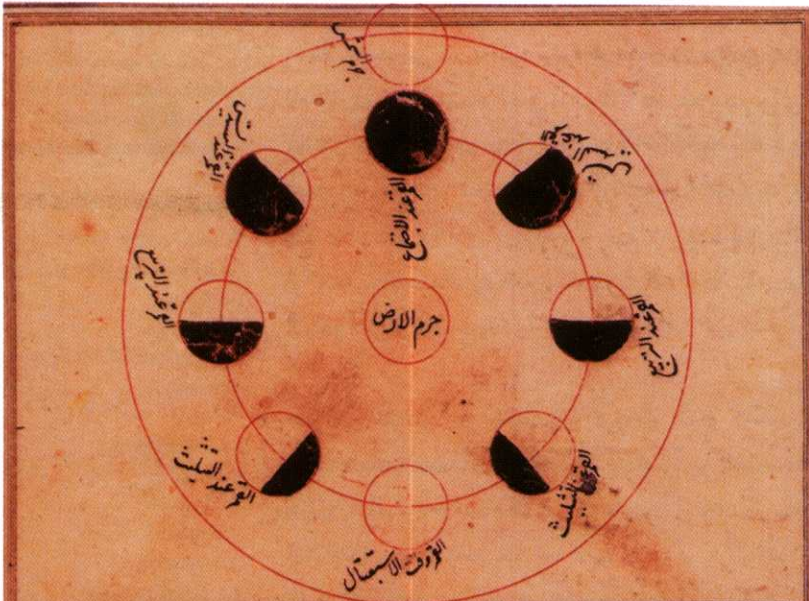 جرم الشمس
القمر عند التسديس
القمر عند الاجتماع
القمر عند التربيع
جرم الارض
القمر عند التربيع
القمر عند التثليث
القمر عند التثليث
القمر وقت الاستقبال